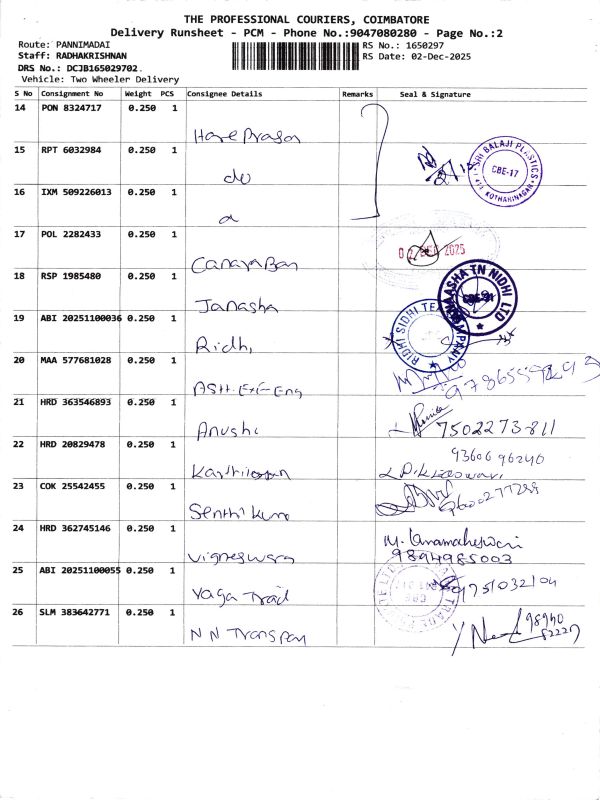 THE PROFESSIONAL COURIERS, COIMBATORE
Delivery Runsheet - PCM - Phone No.:9047080280 - Page No.:2
Route: PANNIMADAI
Staff: RADHAKRISHNAN
DRS No.: DCJB165029702
Vehicle: Two Wheeler Delivery
RS No.: 1650297
RS Date: 02-Dec-2025
S No Consignment No Weight PCS Consignee Details Remarks Seal & Signature
14 PON 8324717 0.250 1
15 RPT 6032984 0.250 1 do SRI BALAJI PLASTICS CBE-17 KOTHARINAGAR
16 IXM 509226013 0.250 1
17 POL 2282433 0.250 1 Canara Ban 02 DEC 2025
18 RSP 1985480 0.250 1 Janasha AASHA TN NIDHI LTD
19 ABI 20251100036 0.250 1 Ridhi RIDHI SIDHI TE
20 MAA 577681028 0.250 1
21 HRD 363546893 0.250 1 Anushi 7502273811
22 HRD 20829478 0.250 1 9360696240
23 COK 25542455 0.250 1 Senthi Kum 9600277299
24 HRD 362745146 0.250 1 Vigneswara M. Umamaheswari 9894985003
25 ABI 20251100055 0.250 1 Yaga Trad 9751032104
26 SLM 383642771 0.250 1 N N Transpor